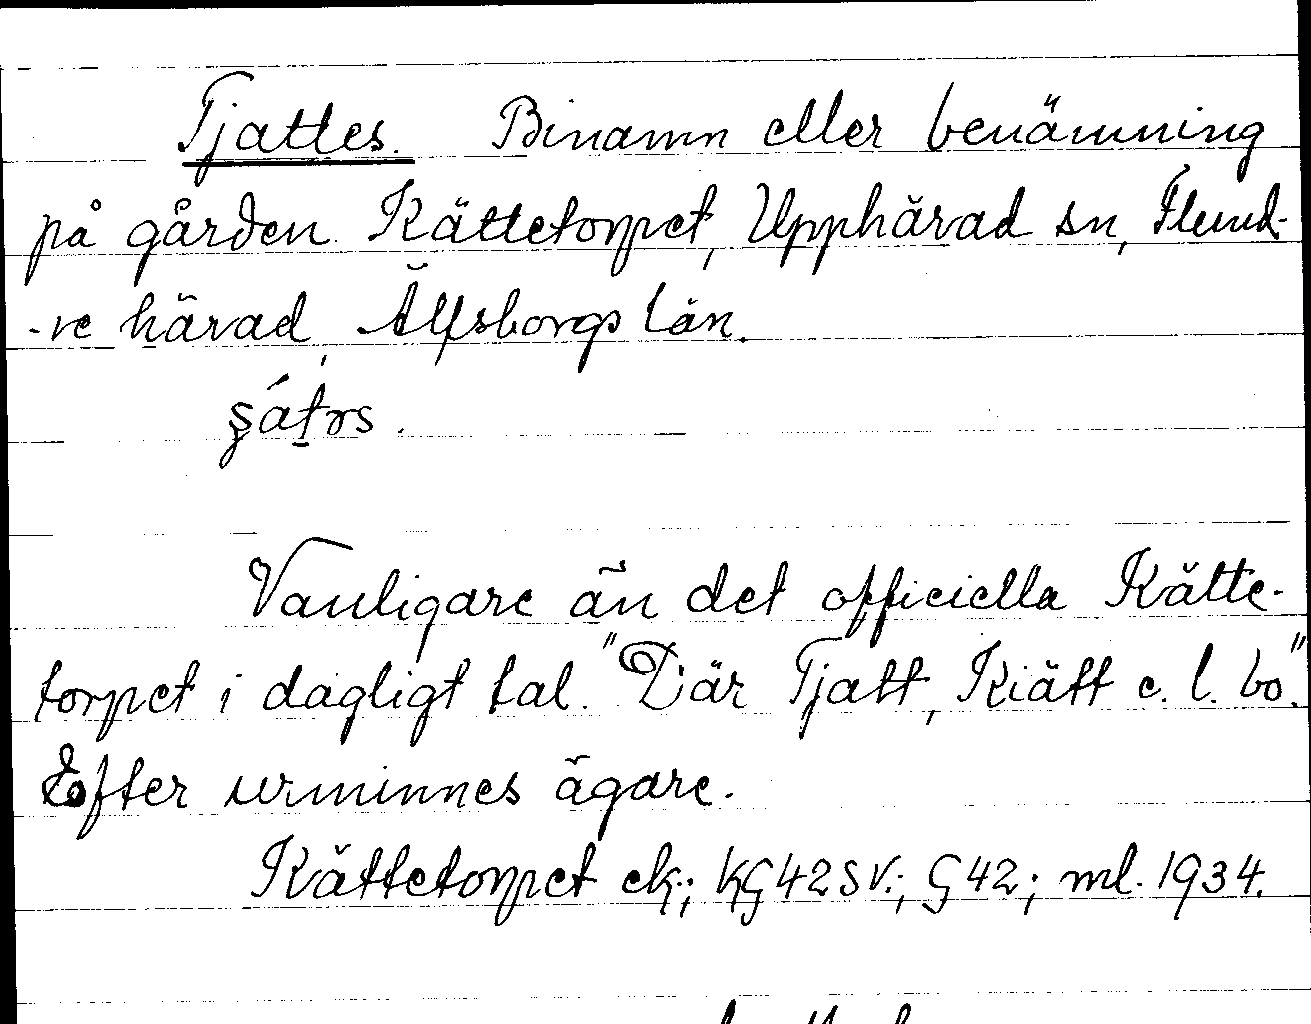 Tjattes. Binamn eller benämning
på gården Kättetorpet, Upphärad sn, Flund-
-re härad, Älfsborgs län.
Vanligare än det officiella Kätte-
torpet i dagligt tal. "Där Tjatt, Kiätt e. l. bo".
Efter urminnes ägare.
Kättetorpet ek.; kG 42 SV.; G 42; ml. 1934.